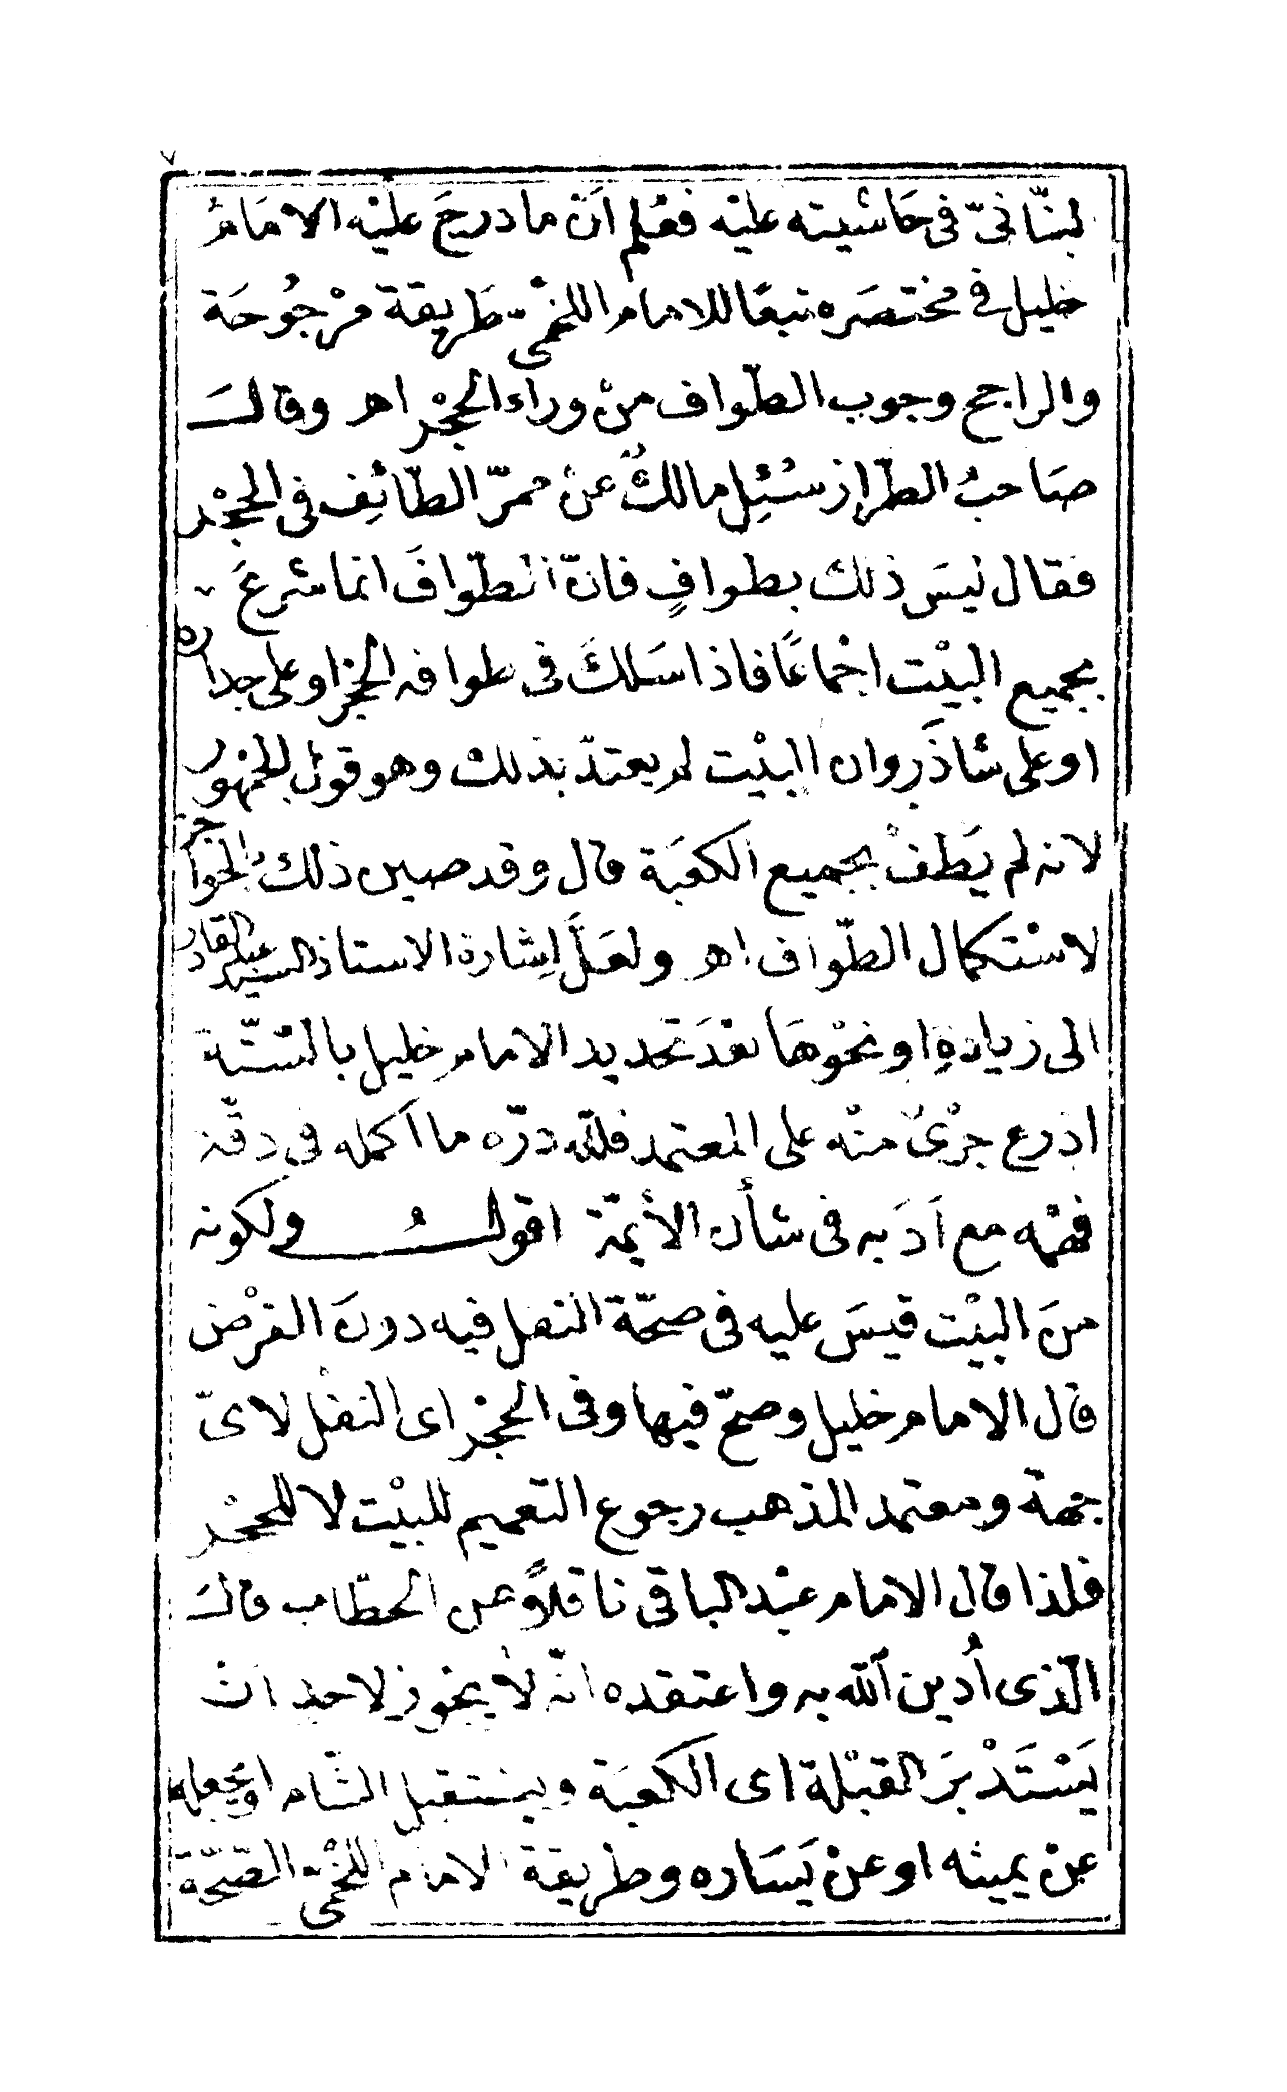 ٧
لبنّانىّ فى حَاشيته عليْه فعُلم اَنّ ما درجَ عليْه الامَامُ
خليل فى مختصَره تبعًا للامام اللخْمىّ طَريقة مرْجوُحَة
والراجح وجوب الطّواف منْ وراء الحِجْر اهـ وقالَ
صَاحبُ الطّراز سُئِل مالكٌ عنْ ممرّ الطّائِف فى الحِجْر
فقال ليسَ ذلك بطوافٍ فانّ الطّوافَ انما شرعَ
بجميع البيْت اجْماعًا فاذا سَلكَ فى طوافه الحِجْر او على جداره
او على شاذَروان البيْت لم يعتدّ بذلك وهو قول الجمْهور
لانه لم يَطفْ بجميع الكعبَة قال وقد صين ذلك
لاسْتكمال الطّواف اهـ ولعَلَّ اِشارة الاستاذ السيد عبد القادر
الى زيادةِ او نحْوهَا بعْدَ تحديد الامام خليل بالسّتّة
اذرع جرْىٌ منْه على المعتمد فللّه درّه ما اَكمله فى دقّة
فهْمه مع اَدَبه فى شأن الأئمّة اقولُ ولكونه
منَ البيْت قيسَ عليه فى صحّة النفل فيه دونَ الفرْض
قال الامام خليل وصحّ فيها وفى الحِجْر اى النفل لاىّ
جهة ومعتمد المذهب رجوع التعميم للبيْت لا للحجْر
فلذا قال الامام عبْد الباقى ناقلاً عن الحطّاب قالَ
الّذى اُدين اللّه به واعتقده انّه لا يجوز لاحد انْ
يَسْتَدْبرَ القبْلة اى الكعبَة ويستقبل الشّام او يجعله
عنْ يمينه او عنْ يَسَاره وطريقة الامام اللخْمىّ الصّحّة